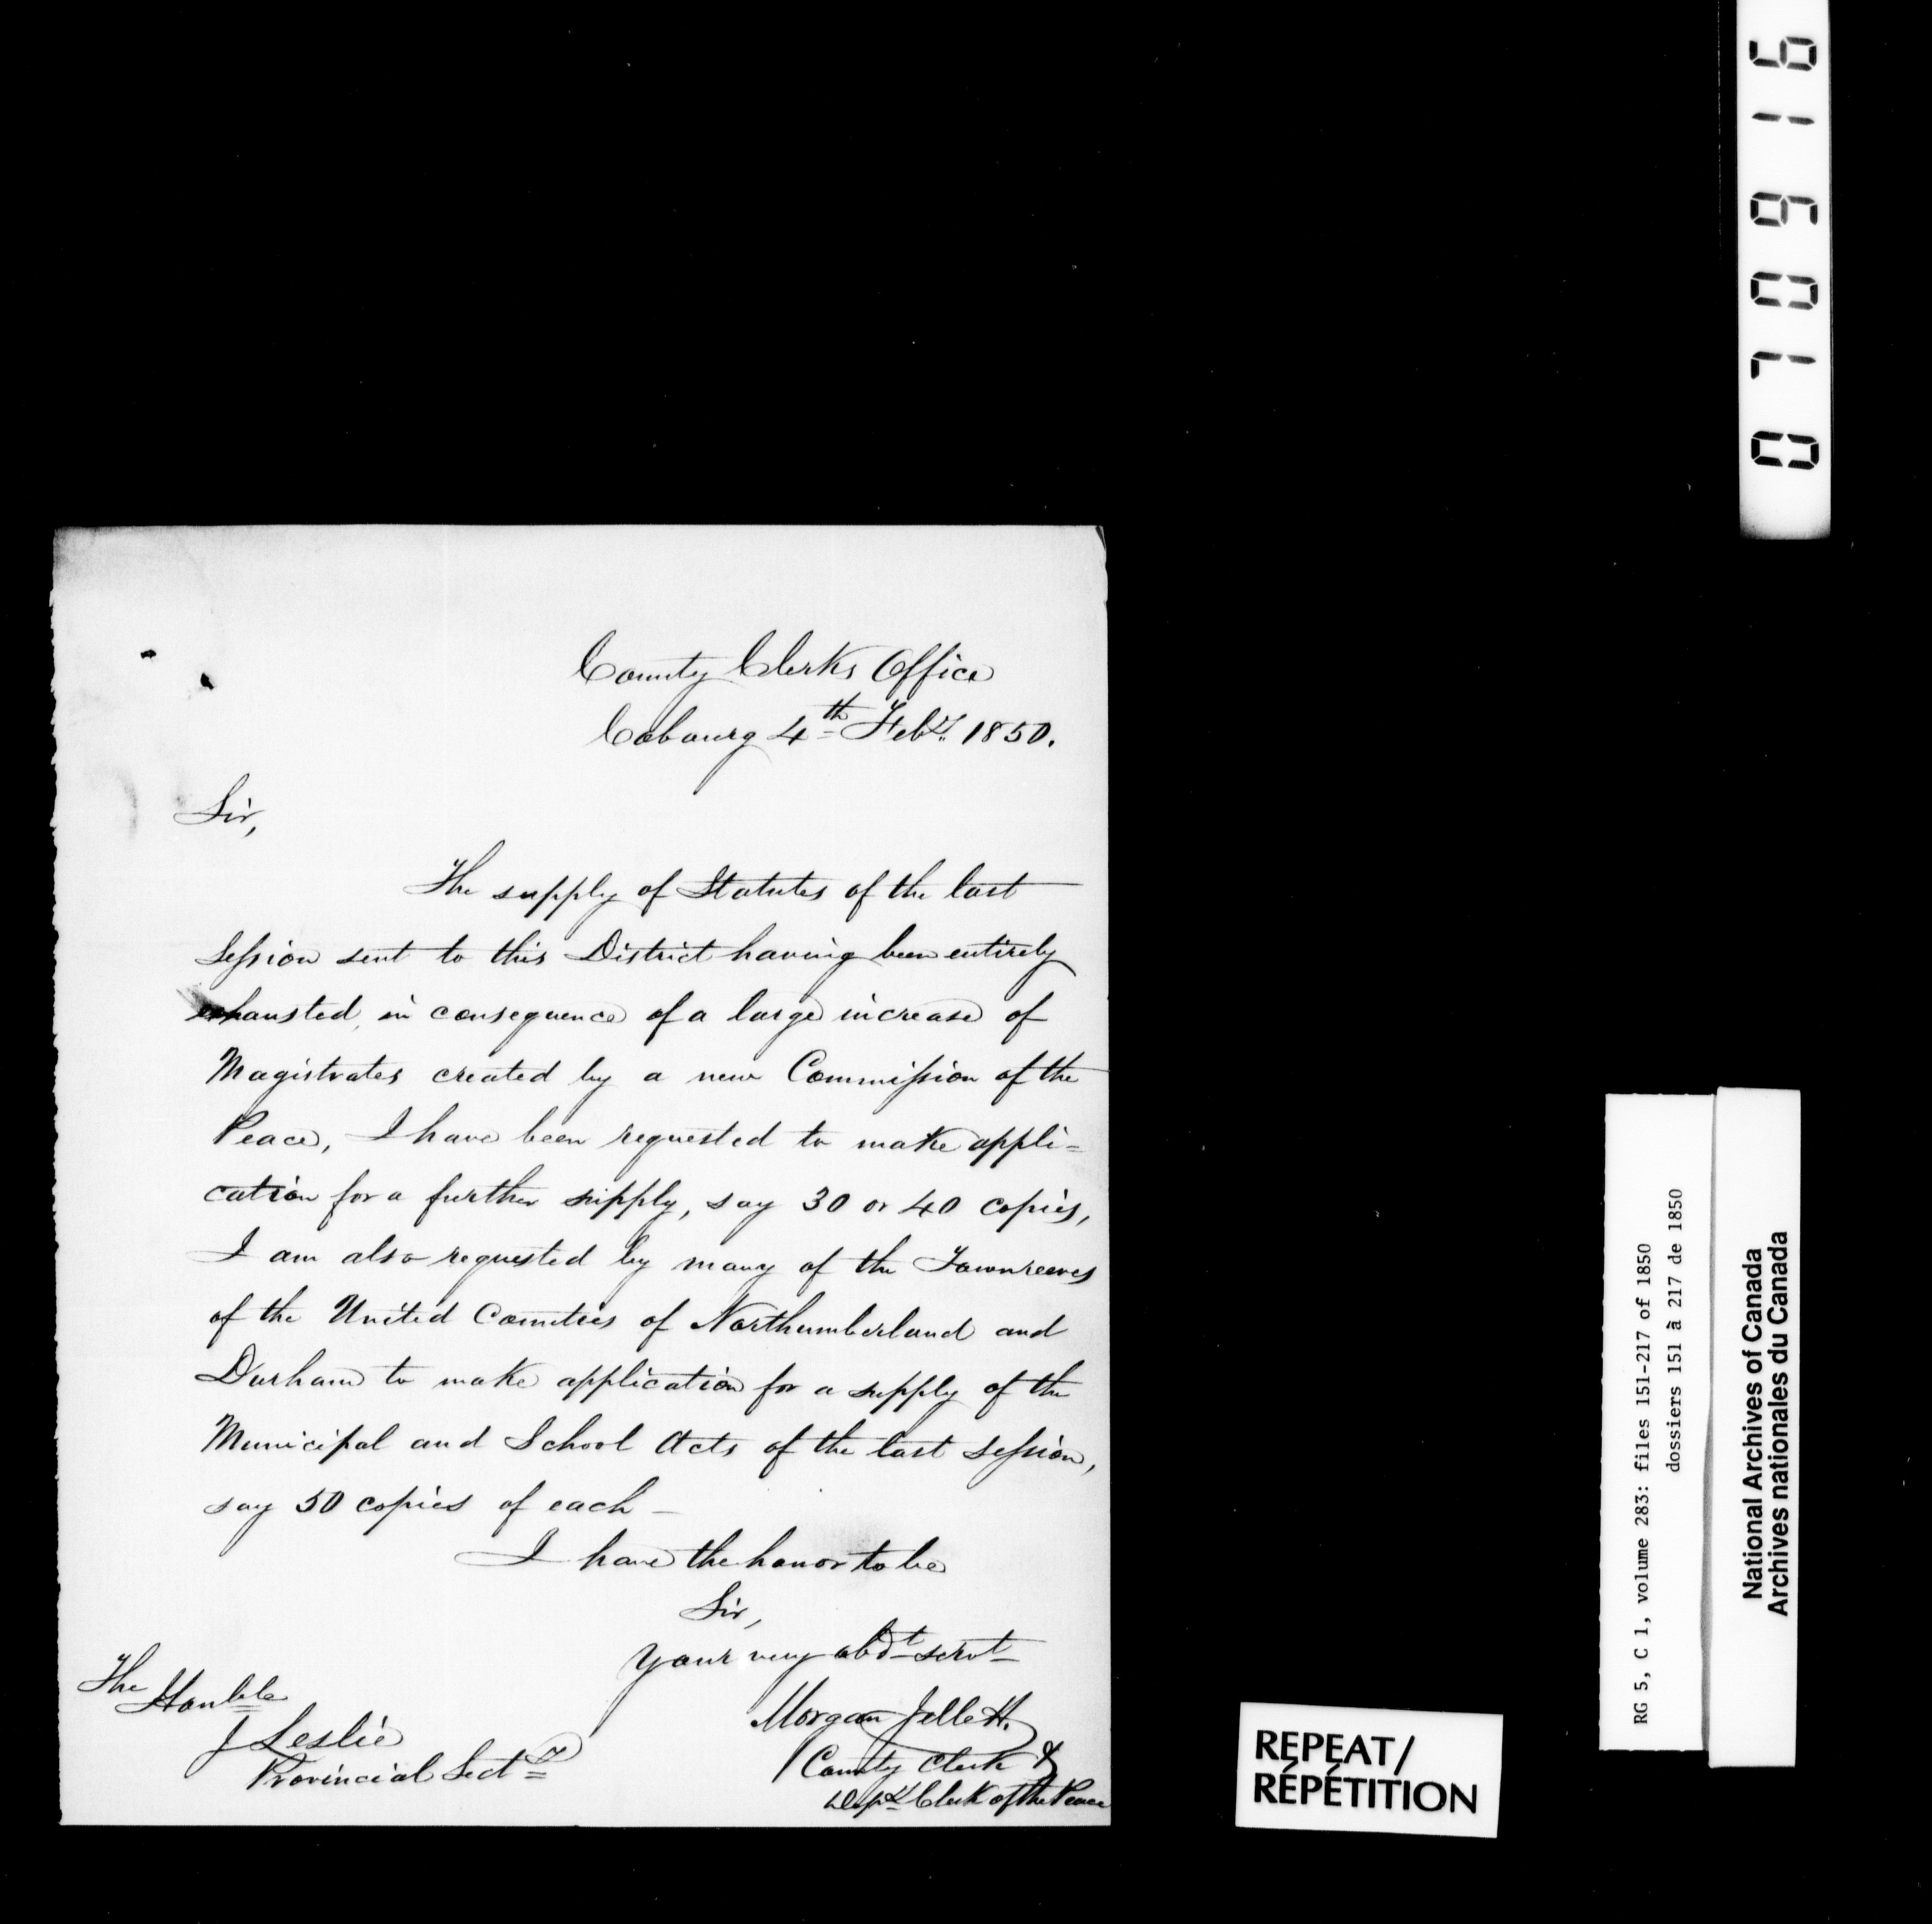 County Clerks Office
Cobourg 4th Feby. 1850.
Sir,
The supply of Statutes of the last
Session sent to this District having been entirely
exhausted, in consequence of a large increase of
Magistrates created by a new Commission of the
Peace, I have been requested to make appli=
cation for a further supply, say 30 or 40 copies,
I am also requested by many of the Townreeves
of the United Counties of Northumberland and
Durham to make application for a supply of the
Municipal and School Acts of the last session,
say 50 copies of each –
I have the honor to be
Sir,
Your very obdt servt
Morgan Jellett.
County Clerk &
Depy Clerk of the Peace
The
Honble
J Leslie
Provincial Secty
REPEAT/
RÉPÉTITION
RG 5, C 1, volume 283: files 151-217 of 1850
dossiers 151 à 217 de 1850
National Archives of Canada
Archives nationales du Canada